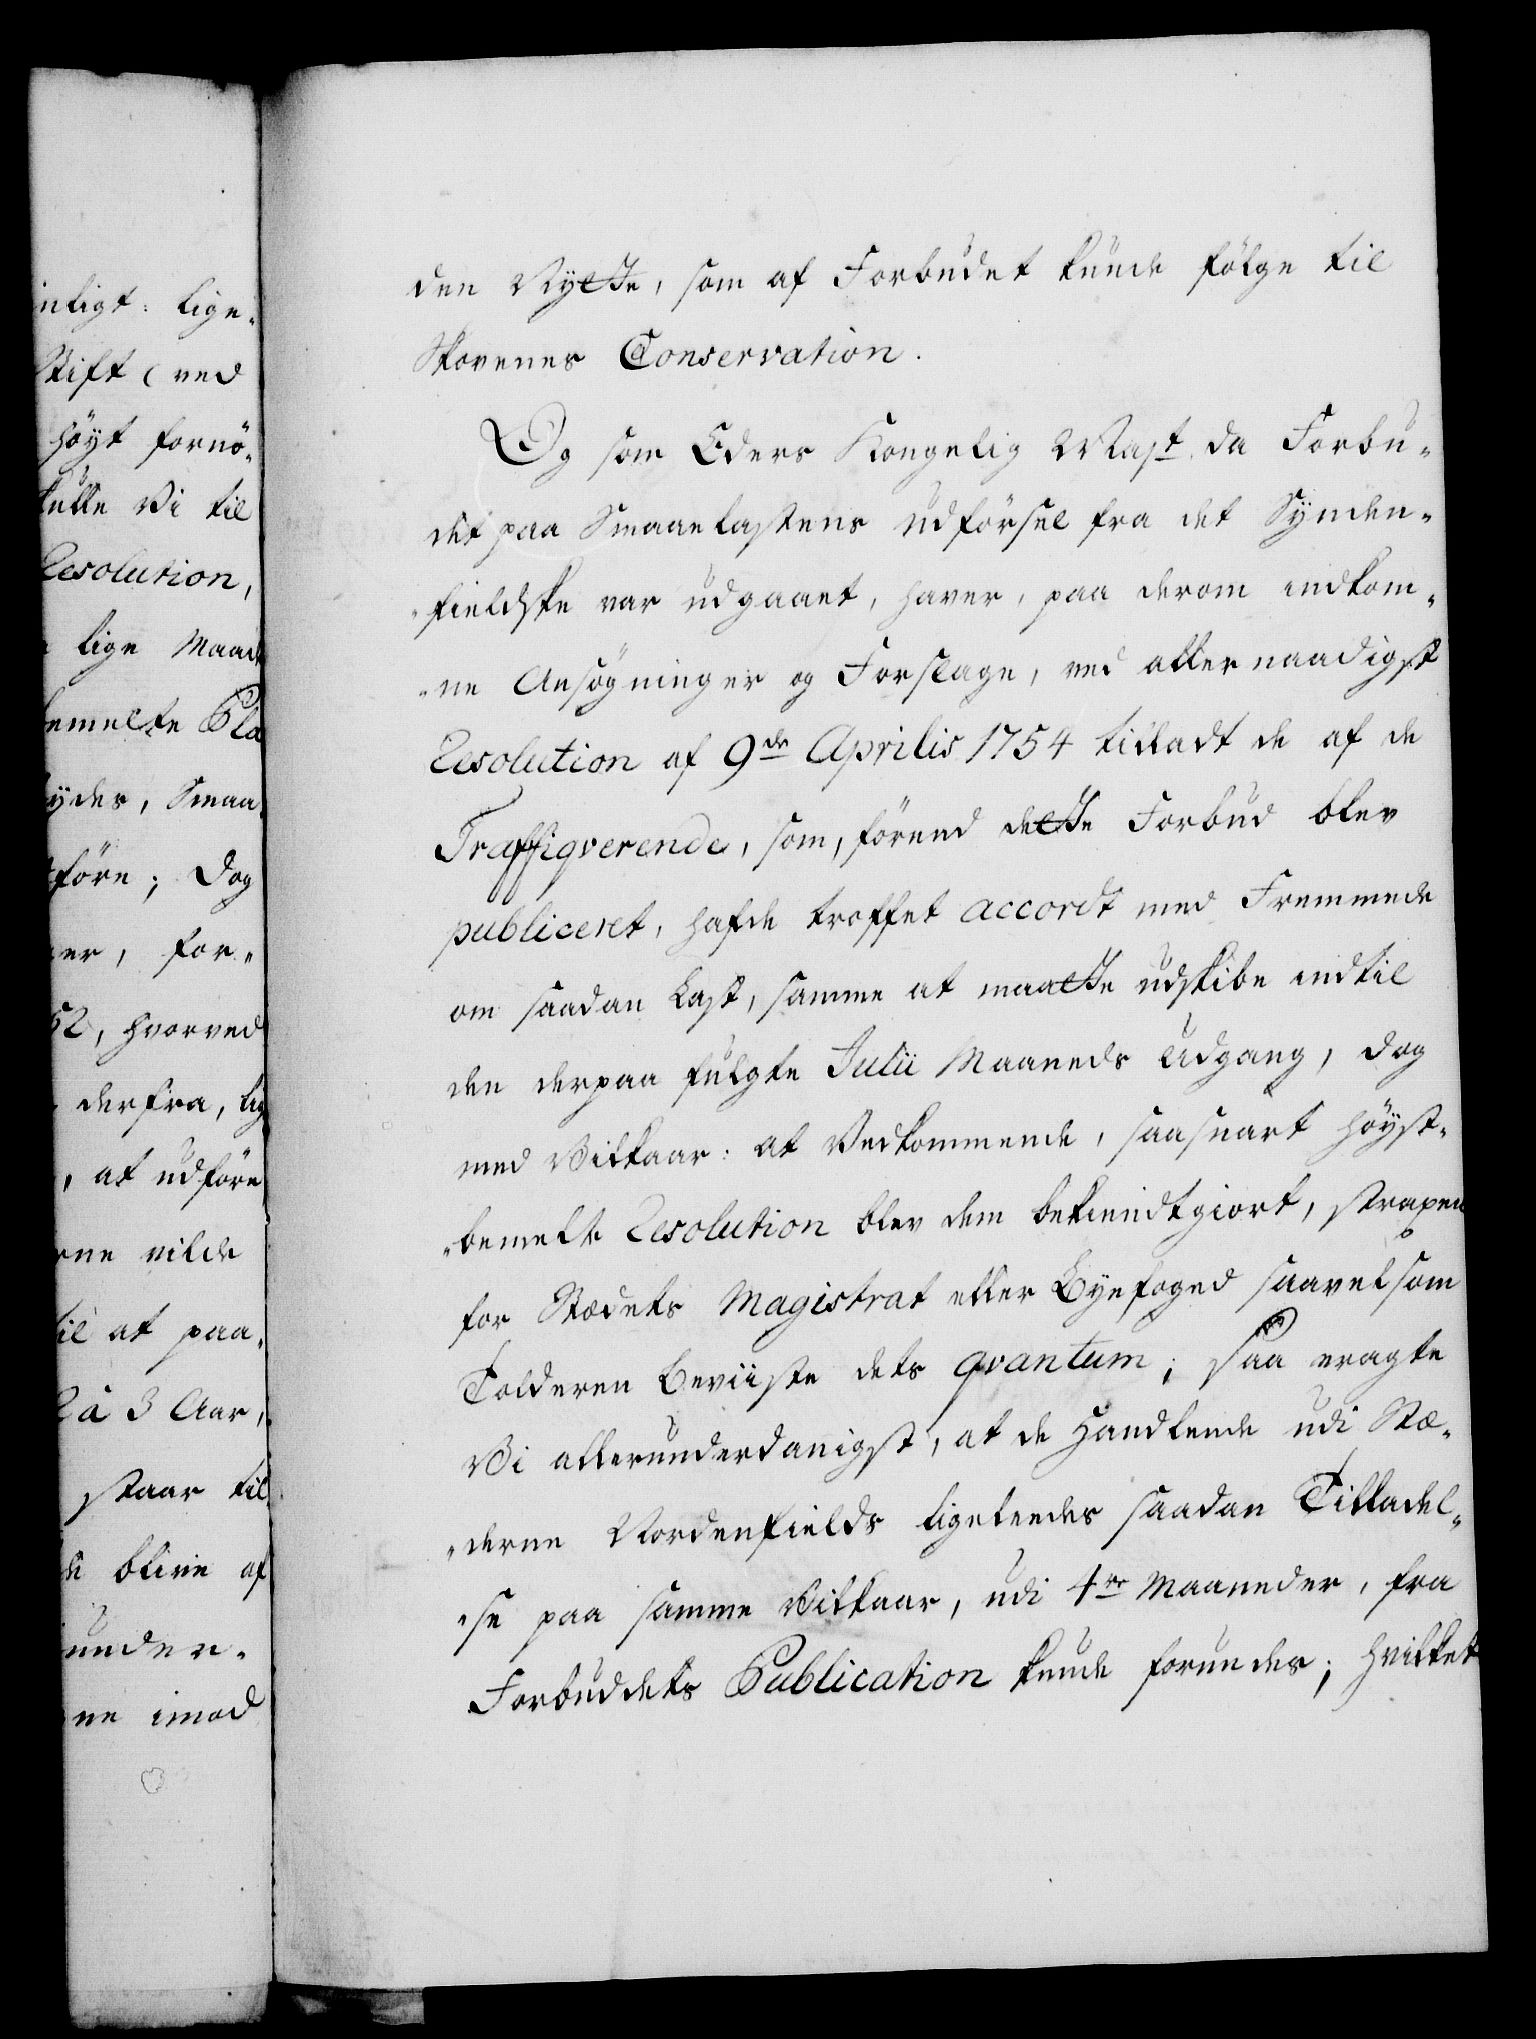 inligt: lige„
Stift (ved
höyt fornö„
skulle Vi til
Resolution,
lige Maade
bemelte Pla
ydes, Smaa„
före; dog
er, for„
52, hvorved
derfra, lig
, at udföre
rne vilde
til at paa„
2 à 3 Aar,
staar til
de blive af
under„
ne imod
den Nytte, som af Forbudet kunde fölge til
Skovenes Conservation.
Og som Eders Kongelig Mayst. da Forbu„
det paa Smaaelastens udförsel fra det Synden„
„fieldske var udgaaet, haver, paa derom indkom„
„ne Ansögninger og Forslage, ved allernaadigst
Resolution af 9de Aprilis 1754 tilladt de af de
Traffiqverende, som, förend dette Forbud blev
publiceret, hafde troffet accordt med Fremmede
om saadan Last, samme at maatte udskibe indtil
den derpaa fulgte Julii Maaneds Udgang, dog
med Vilkaar: at Vedkommende, saasnart höyst„
„bemelte Resolution blev dem bekiendtgiort, straxen
for Stædets Magistrat eller Byefoged saavelsom
Tolderen Beviiste dets qvantum; Saa eragte
Vi allerunderdanigst, at de Handlende udi Stæ„
„derne Nordenfields ligeleedes saadan Tilladel„
„se paa samme Vilkaar, udi 4re Maaneder, fra
Forbuddets Publication kunde forundes; hvilket